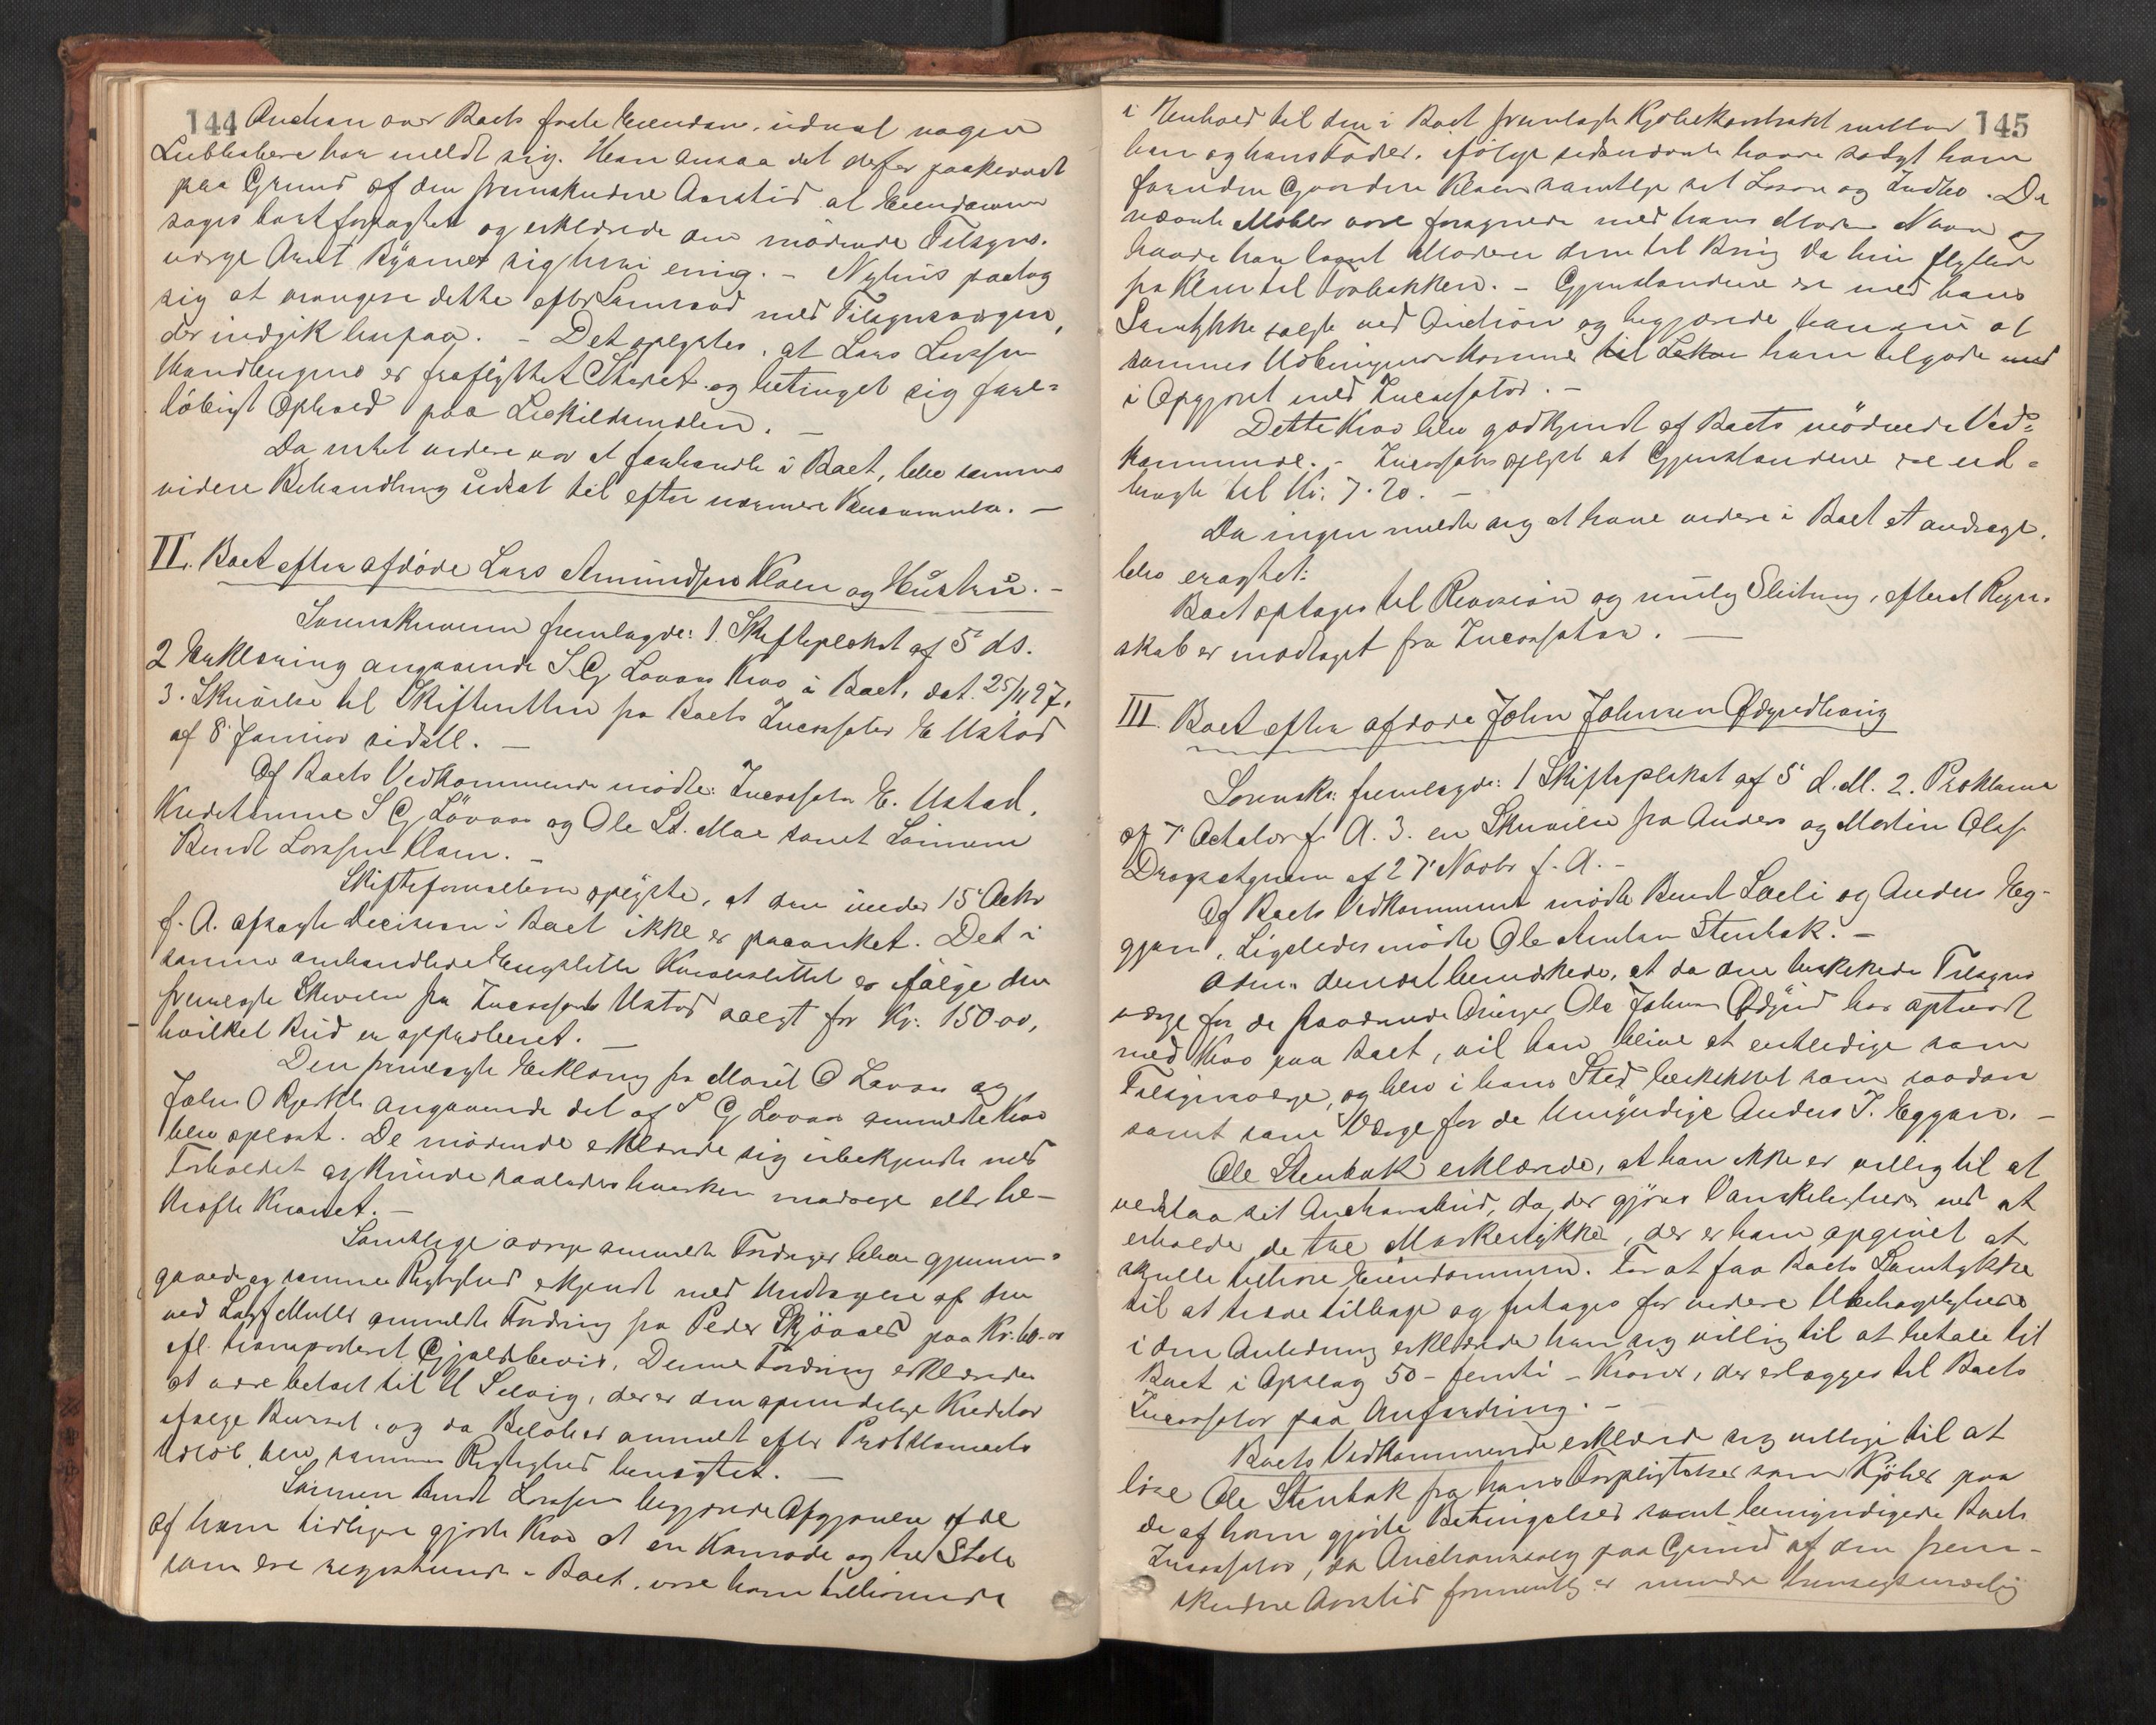 144 Auction over Boets faste Eiendom, idmat nogen
Liebhabere har meldt sig. Han ansaa det derfor paakrævet
paa Grund af den fremskudne Aarstid at Eiendommen
søges bortforpagtet og erklærede den mødende Tilsyns-
værge Arnt sig heri enig. - Nyhus paatog
sig at arrangere dette efter Samraad med Tilsynsværgen,
der indgik herpaa. - Det oplystes, at Lars Larssen
er fraflyttet Stedet og betinget sig fore-
løbigt Ophold paa
Da intet videre var at forhandle i Boet, blev sammes
videre Behandling udsat til efter nærmere Berammelse. -
II. Boet efter afdøde Lars Amundsen Kloen og Hustru. -
Sorenskriveren fremlagde: 1. Skifteplakat af 5' ds.
2 Erklæring angaaende S. G. Løvaas Krav i Boet, dat. 25/11 97,
3. Skrivelse til Skifteretten fra Boets Incassator E Ustad
af 8' Januar sidstl. -
Af Boets Vedkommende mødte: Incassator E. Ustad,
Kreditorerne S G Løvaas og Ole St. Moe samt Sønnen
Bendt Larssen Kloen. -
Skifteforvalteren oplyste, at den under 15' Octbr
f. A. afsagte Decision i Boet ikke er paaanket. Det i
samme omhandlede Engslette Kvernslettet er ifølge den
fremlagte Skrivelse fra Incassator Ustad solgt for Kr. 150.00,
hvilket Bud er approberet. -
Den fremlagte Erklæring fra Marit O Løvaas og
John O angaaende det af S G Løvaas anmeldte Krav
blev oplæst. De mødende erklærede sig ubekjendte med
Forholdet og kunde saaledes hverken modsige eller be-
kræfte Kravet. -
Samtlige øvrige anmeldte Fordringer bleve gjennem-
gaaede og sammes Rigtighed erkjendt med Undtagelse af den
ved anmeldte Fordring fra Peder paa Kr. 60.00
efl. transporteret Gjældsbevis. Denne Fordring erklæredes
at være betalt til U Selvig, der er den oprindelige Kreditor
ifølge Beviset, og da Beløbet anmeldt efter Proklamaets
Udløb, blev sammes Rigtighed benægtet. -
Sønnen Bendt Larssen begjærede Afgjørelse af de
af ham tidligere gjorte Krav at en Komode og tre Stole
som ere registrerede i Boet, vare ham tilhørende
i Henhold til den i Boet fremlagte Kjøbekontrakt mellem 145
ham og hans Fader, ifølge sidstnævnte havde solgt ham
foruden Gaarden Kloen samtlige sit Løsøre og Indbo. De
nævnte Møbler vare forsynede med hans Moders Navn og
havde han laant Moderen dem til Brug da hun flyttede
fra Kloen til - Gjenstandene ere med hans
Samtykke solgte ved Auction og begjærede han nu at
sammes Udbringende Komme ham tilgode
i Opgjøret med Incassator. -
Dette Krav blev godkjendt af Boets mødende Ved-
kommende. - Incassator oplyste at Gjenstandene ere ud-
bragte til Kr. 7.20. -
Da ingen meldte sig at have videre i Boet at andrage,
blev eragtet:
Boet optages til Revision og mulig Slutning, efterat Regn-
skab er modtaget fra Incassator. -
III. Boet efter afdøde John Johnsen
Sorenskr. fremlagde: 1 Skifteplakat af 5' d. M. 2. Proklama
af 7' October f. A. 3. en Skrivelse fra Anders og Martin Olsen
af 27' Novbr f. A. -
Af Boets Vedkommende mødte Bendt og Anders Eg-
gjan. Ligeledes mødte Ole Amtsen Stenbak. -
Adm. dernæst bemærkede, at da den beskikkede Tilsyns-
værge for de fraværende Arvinger Ole Johnsen har optraadt
med Krav paa Boet, vil han blive at entledige som
Tilsynsværge, og blev i hans Sted beskikket som saadan
samt som Værge for de Umyndige Anders J. Eggjan. -
Ole Stenbak erklærede, at han ikke er villig til at
vedstaa sit Auctionsbud, da der gjøres Vanskeligheder ved at
erholde de tre Markestykker, der er ham opgivet at
skulle tilhøre Eiendommen. For at faa Boets Samtykke
til at træde tilbage og fritages for videre Ubehageligheder
i den Anledning erklærede han sig villig til at betale til
Boet i Opslag 50 - femti - Kroner, der erlægges til Boets
Incassator paa Anfordring. -
Boets Vedkommende erklærede sig villige til at
løse Ole Stenbak fra hans Forpligtelser som Kjøber paa
de af ham gjorte Betingelser samt bemyndigede Boets
Incassator, da Auctionssalg paa Grund af den frem-
skudne Aarstid formentlig er mindre hensigtsmæssig